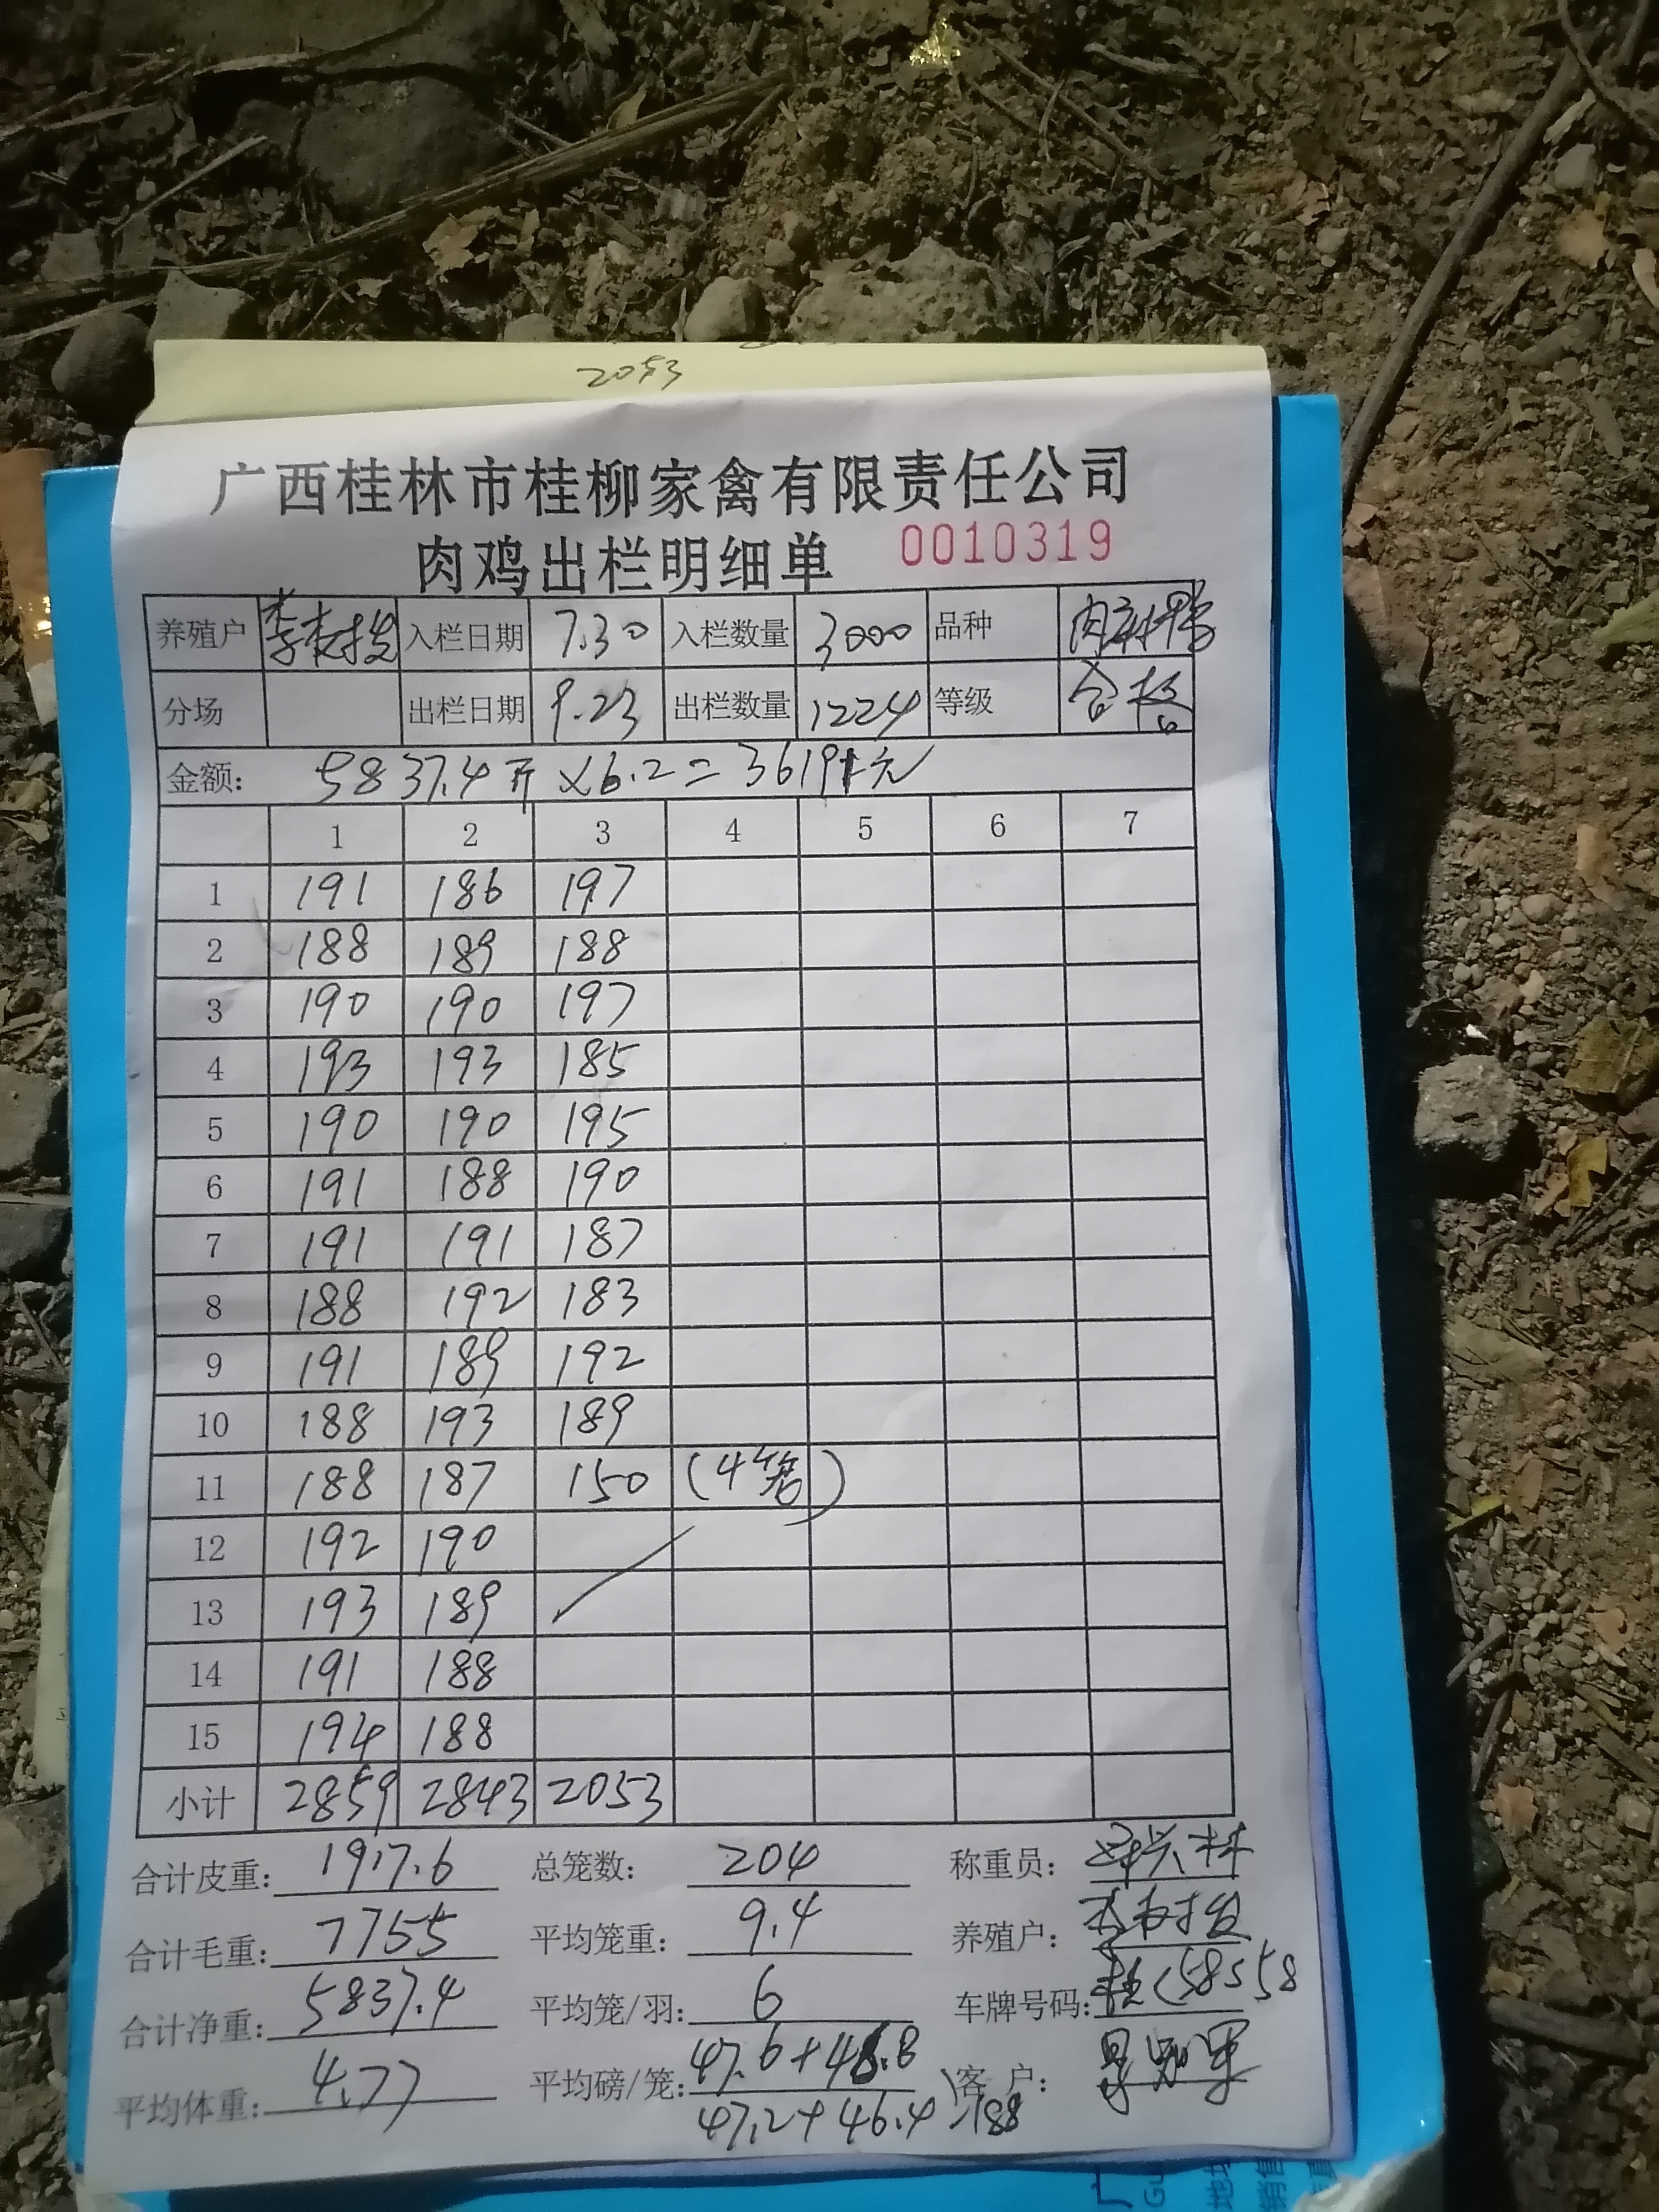 2053
广西桂林市桂柳家禽有限责任公司
肉鸡出栏明细单 0010319
养殖户 入栏日期 7.30 入栏数量 3000 品种 肉麻鸭
分场 出栏日期 9.23 出栏数量 1224 等级 合格
金额: 5837.4斤×6.2=36191元
1 2 3 4 5 6 7
1 191 186 197
2 188 189 188
3 190 190 197
4 193 193 185
5 190 190 195
6 191 188 190
7 191 191 187
8 188 192 183
9 191 189 192
10 188 193 189
11 188 187 150 (4笼)
12 192 190
13 193 189
14 191 188
15 194 188
小计 2859 2843 2053
合计皮重: 1917.6 总笼数: 204 称重员:
合计毛重: 7755 平均笼重: 9.4 养殖户:
合计净重: 5837.4 平均笼/羽: 6 车牌号码: 桂C58558
平均体重: 4.77 平均磅/笼: 47.6+46.8 客户:
47.2+46.4 =188
广
Gu
地址
销售